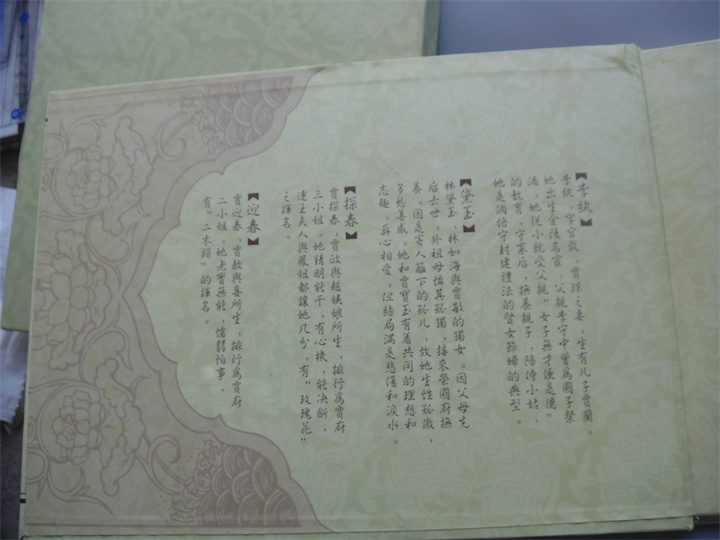 【李紈】
李紈，字宮裁，賈珠之妻，生有儿子賈蘭。
她出生金陵名宦，父親李守中曾為國子祭
酒。她從小就受父親"女子無才便是德"
的教育，守寡后，撫養親子，陪侍小姑，
她是個恪守封建禮法的賢女節婦的典型。
【黛玉】
林黛玉，林如海與賈敏的獨女。因父母先
后去世，外祖母憐其孤獨，接來榮國府撫
養。因是寄人籬下的孤儿，故她生性孤傲，
多愁善感。她和賈寶玉有着共同的理想和
志趣，真心相愛，但結局滿是悲傷和淚水。
【探春】
賈探春，賈政與趙姨娘所生，排行為賈府
三小姐。她精明能干，有心機，能決斷，
連王夫人與鳳姐都讓她几分，有"玫瑰花"
之諢名。
【迎春】
賈迎春，賈赦與妾所生，排行為賈府
二小姐。她老實無能，懦弱怕事，
有"二木頭"的諢名。